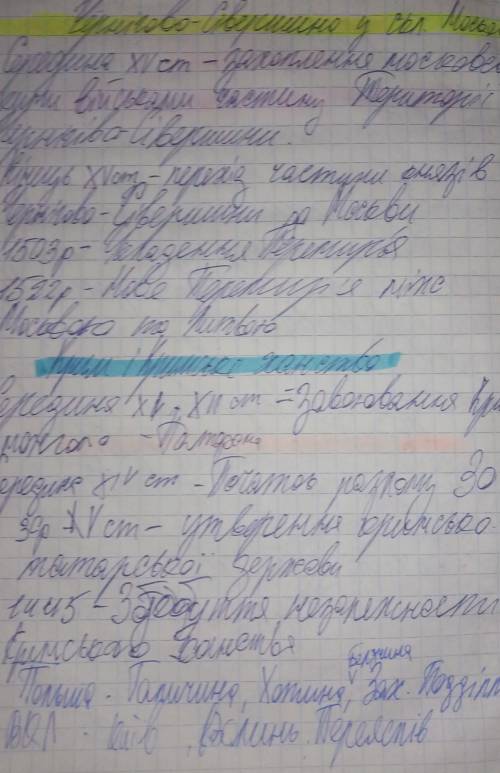 Чернігово-Сіверщина у скл. Москов
Середина XV ст - захоплення московсь
кими військами частину Території
Чернігово-Сіверщини.
Кінець XV ст - перехід частини князів
Чернігово-Сіверщини до Москви
1503р - Укладення Перемир'я
1522р - Нове Перемир'я між
Москвою та Литвою
Крим і Кримське ханство
Середина ст = Завоювання Кри
монголо - Татарами
середина XIV ст - Початок розпаду ЗО
30р XV ст - утворення кримсько-
татарської держави
1445 - Здобуття незалежності
Кримського ханства
Белжчина
Польща - Галичина, Холмщина, Зах. Поділля
ВКЛ - Київ, Волинь. Переяслів